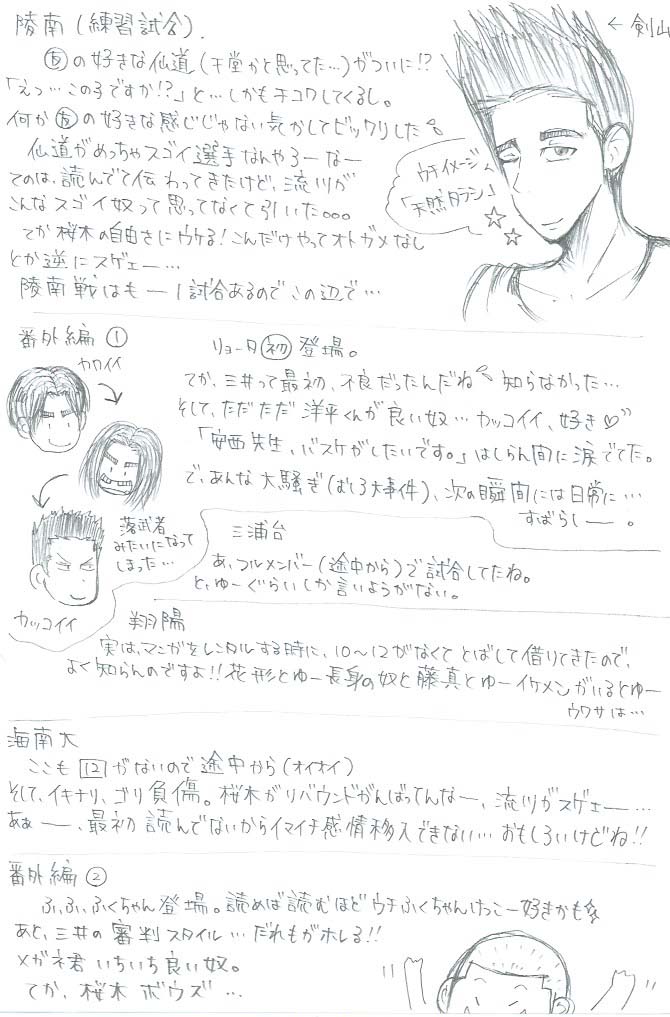 陵南(練習試合).
← 剣山
友の好きな仙道(千堂かと思ってた…)がついに!?
「えっ…この子ですか!?」と…しかもチコクしてくるし。
何か友の好きな感じじゃない気がしてビックリした
仙道がめっちゃスゴイ選手なんやろーなー
てのは、読んでて伝わってきたけど、流川が
こんなスゴイ奴って思ってなくて引いた。。。
てか桜木の自由さにウケる!こんだけやってオトガメなし
とか逆にスゲェー…
陵南戦はもー1試合あるのでこの辺で…
ウチイメージ
「天然タラシ」
番外編①
カワイイ
落武者
みたいになって
しまった…
カッコイイ
リョータ初登場。
てか、三井って最初、不良だったんだね 知らなかった…
そして、ただただ洋平くんが良い奴…カッコイイ、好き♡”
「安西先生、バスケがしたいです。」はしらん間に涙でてた。
で、あんな大騒ぎ(むしろ大事件)、次の瞬間には日常に…
すばらしー。
三浦台
あ、フルメンバー(途中から)で試合してたね。
と、ゆーぐらいしか言いようがない。
翔陽
実は、マンガをレンタルする時に、10〜12がなくてとばして借りてきたので、
よく知らんのですよ!!花形とゆー長身の奴と藤真とゆーイケメンがいるとゆー
ウワサは…
海南大
ここも12がないので途中から(オイオイ)
そして、イキナリ、ゴリ負傷。桜木がリバウンドがんばってんなー、流川がスゲェー…
あぁー、最初読んでないからイマイチ感情移入できない…おもしろいけどね!!
番外編②
ふ、ふ、ふくちゃん登場。読めば読むほどウチふくちゃんけっこー好きかも
あと、三井の審判スタイル…だれもがホレる!!
メガネ君いちいち良い奴。
てか、桜木ボウズ…